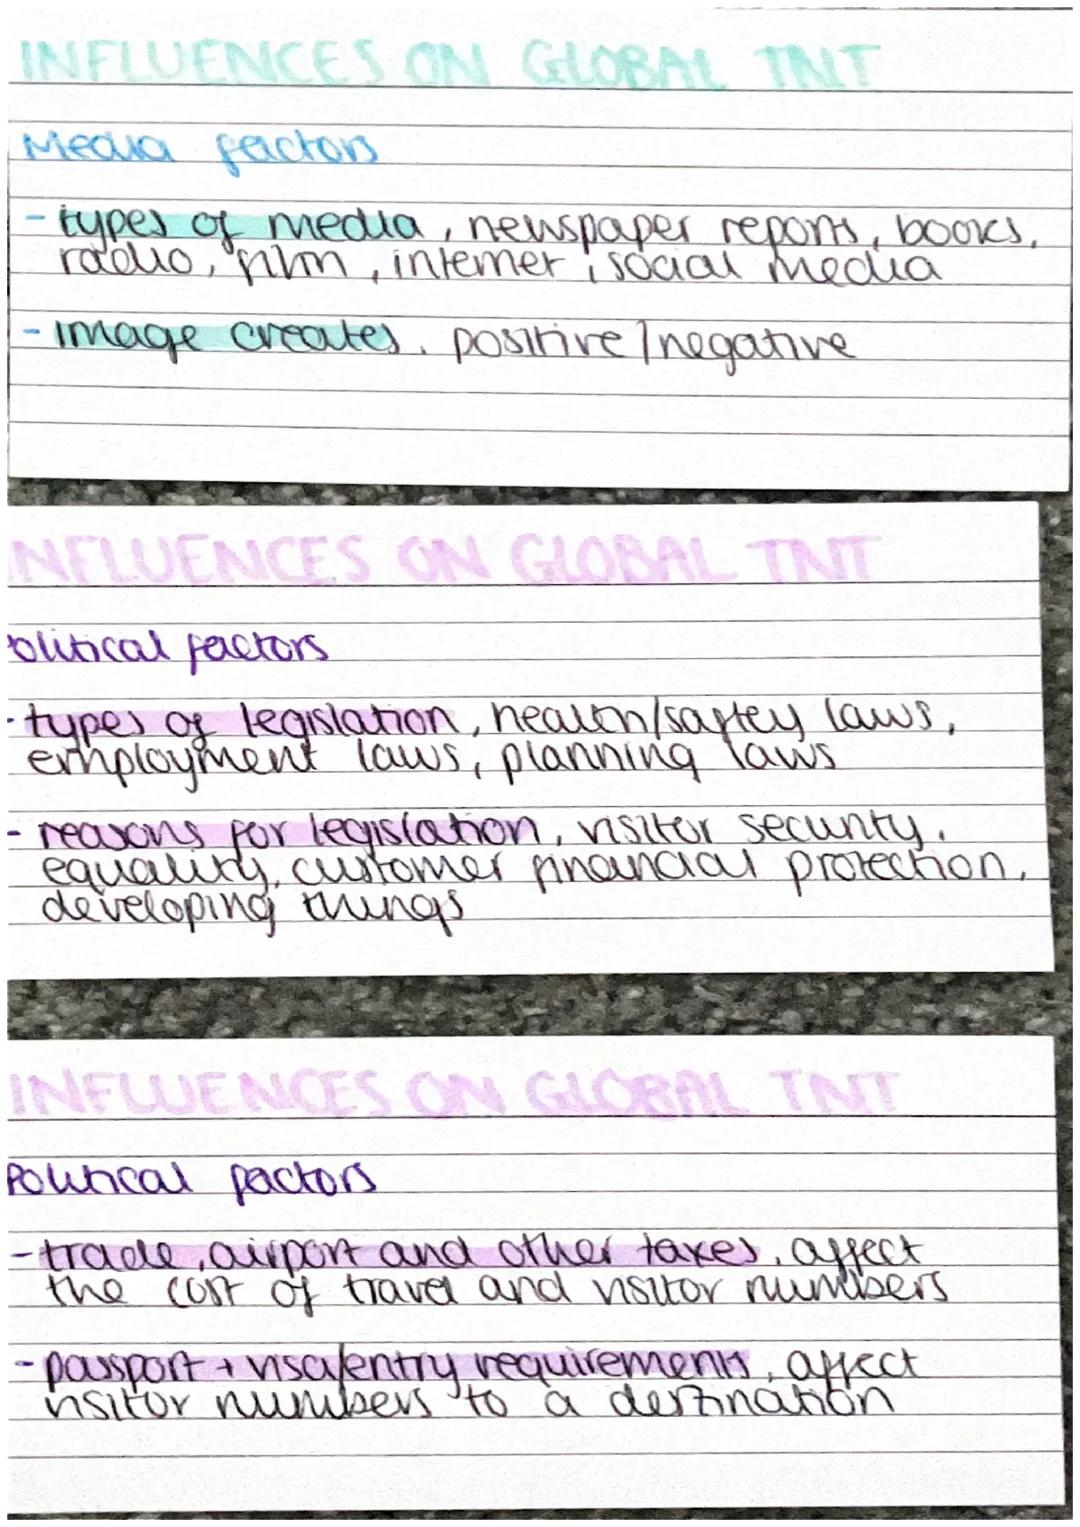 INFLUENCES ON GLOBAL TNT
Media factors
- types of media, newspaper reports, books,
radio, film, internet, social media
- image creates, positive/negative
NFLUENCES ON GLOBAL TNT
olitical factors
- types of legislation, health/saftey laws,
employment laws, planning laws
- reasons for legislation, visitor security,
equality, customer financial protection,
developing things
INFLUENCES ON GLOBAL TNT
Political factors
- trade, airport and other taxes, affect
the cost of travel and visitor numbers
- passport + visa/entry requirements, affect
visitor numbers to a destination